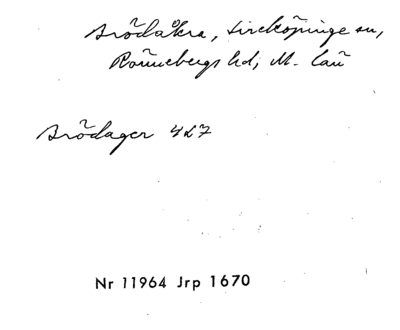 Brödåkra, Sireköpinge sn,
Rönnebergs hd, M. län
Brödager 4L7
Nr 11964 Jrp 1670